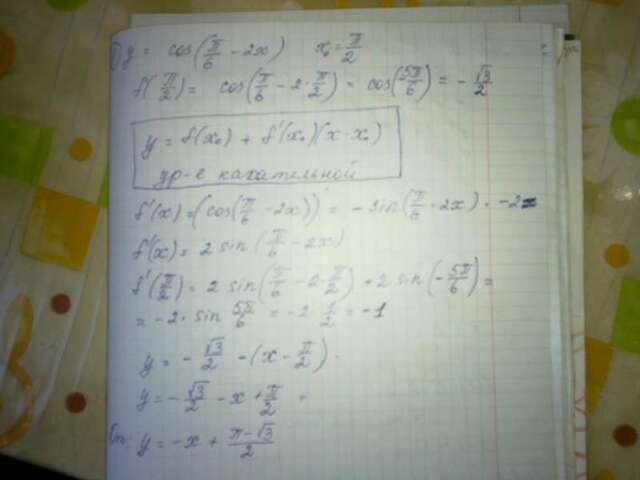 1) y = cos(π/6 - 2x)   x₀ = π/2
f(π/2) = cos(π/6 - 2·π/2) = cos(5π/6) = -√3/2
y = f(x₀) + f'(x₀)(x-x₀)
ур-е касательной
f'(x) = (cos(π/6 - 2x))' = - sin(π/6 - 2x) · -2
f'(x) = 2 sin(π/6 - 2x)
f'(π/2) = 2 sin(π/6 - 2·π/2) = 2 sin(-5π/6) =
= -2 · sin 5π/6 = -2 · 1/2 = -1
y = -√3/2 - (x - π/2) ·
y = -√3/2 - x + π/2
От: y = -x + π-√3/2